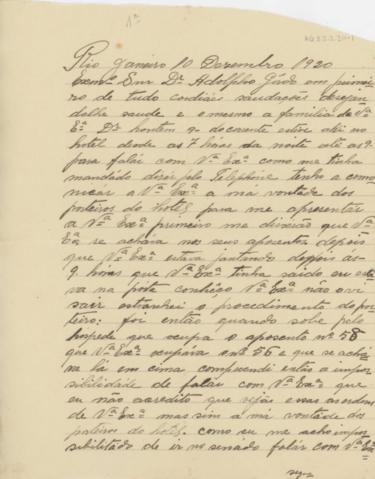 1ª
Rio Janeiro 10 Dezembro 1920
Exmº Snr Dr Adolpho Gôdo em primei
ro de tudo cordiais saudações desejan
dolhe saude e o mesmo a familia de Vª
Eª Dr hontem 9 do corente estive ahi no
hotel desde as 7 horas da noite até as 9
para falar com Vª Exª como me tinha
mandado dizer pelo Telephone tenho a comu
nicar a Vª Exª a má vontade dos
porteiros do hotel para me apresentar
a Vª Exª primeiro me diserão que Vª
Eª se achava nos seus aposentos depois
que Vª Exª estava jantando depois ás
9 horas que Vª Exª tinha saido eu esta
va na porta conheço Vª Exª não o vi
sair estranhei o procedimento do por
teiro: foi então quando sobe pelo
hospede que ocupa o aposento nº 58
que Vª Exª ocupava o nº 56 e que se acha
va lá em cima compreendi então a impos
sibilidade de falar com Vª Exª que
eu não acredito que sejão essas as ordens
de Vª Exª mas sim a má vontade dos
porteiros do hotel. como eu me acho impos
sibilitado de ir no senado falar com Vª Exª